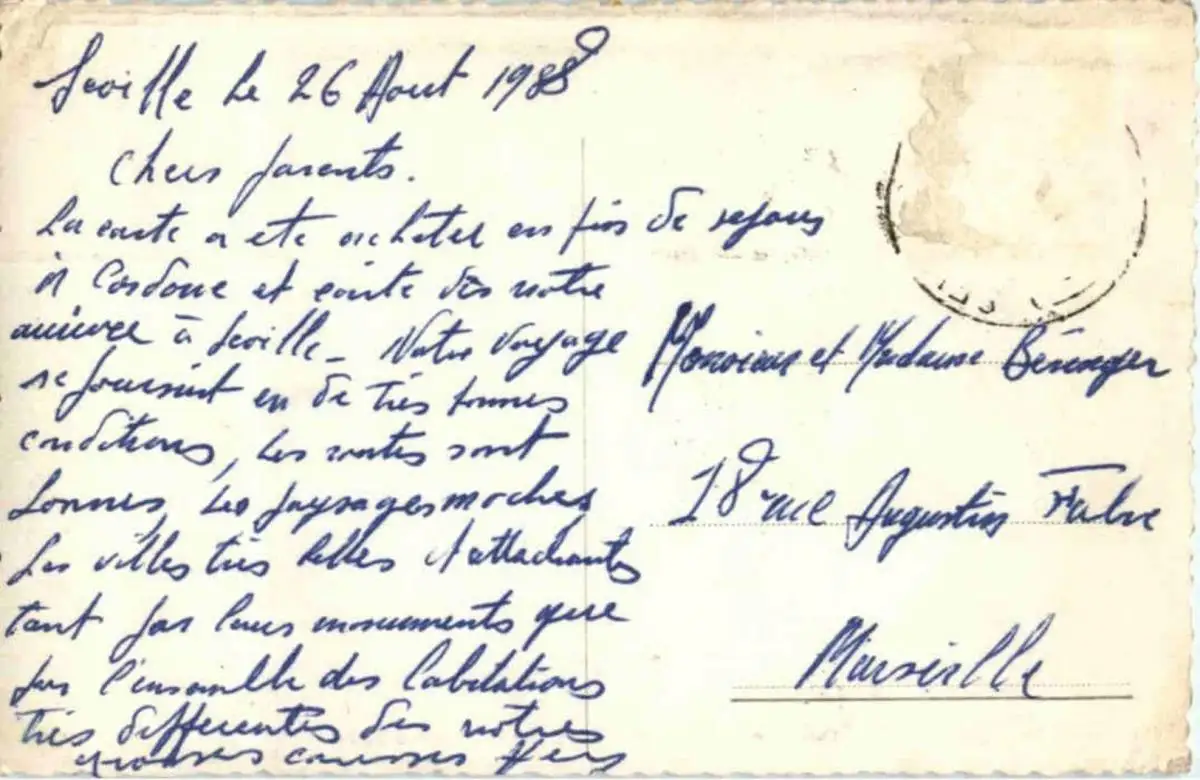 Seville le 26 Aout 1988
Chers parents.
La carte a ete acheter en fin de sejour
à Cordoue et écrite dès notre
arrivee à Seville_ Notre Voyage
se poursuit en de très bonnes
conditions, les routes sont
bonnes, les paysages moches,
les villes très belles attachantes
tant par leurs monuments que
par l'ensemble des habitations
très differentes des notres
grosses caresses
Monsieur et Madame Bérenger
18 rue Augustin Fabre
Marseille